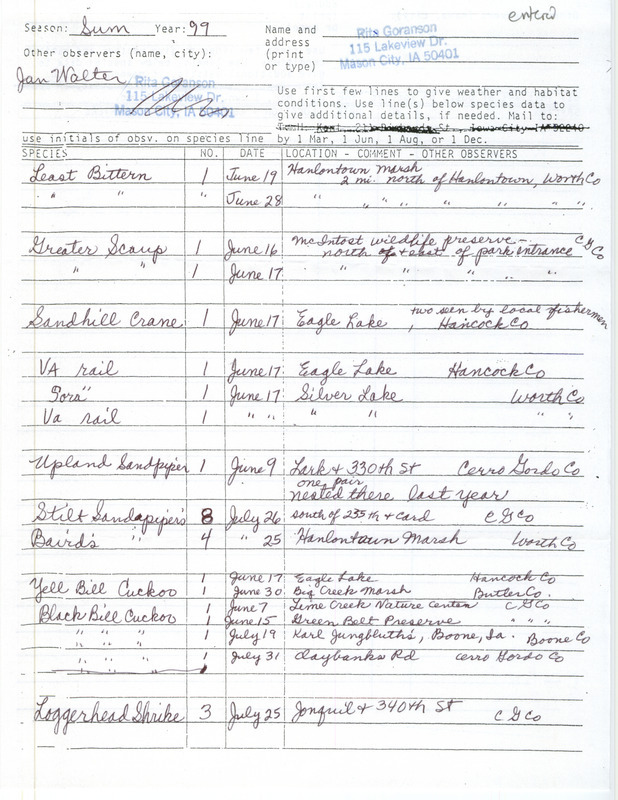 entered
Season: Sum Year: 99
Name and address (print or type)
Rita Goranson
115 Lakeview Dr.
Mason City, IA 50401
Other observers (name, city):
Jan Walter
Rita Goranson
115 Lakeview Dr.
Mason City, IA 50401
Use first few lines to give weather and habitat
conditions. Use line(s) below species data to
give additional details, if needed. Mail to:
Iowa City IA 52240
use initials of obsv. on species line by 1 Mar, 1 Jun, 1 Aug, or 1 Dec.
SPECIES NO. DATE LOCATION - COMMENT - OTHER OBSERVERS
Least Bittern 1 June 19 Hanlontown Marsh
2 mi. north of Hanlontown, Worth Co
" " " June 28 " " " " " " "
Greater Scaup 1 June 16 McIntost wildlife preserve - C G Co
north of + east of park entrance
" " 1 June 17 " " " " "
two seen by local fishermen
Sandhill Crane 1 June 17 Eagle Lake , Hancock Co
VA rail 1 June 17 Eagle Lake Hancock Co
Sora " 1 June 17 Silver Lake Worth Co
Va rail 1 " " " " " "
Upland Sandpiper 1 June 9 Lark + 330th St Cerro Gordo Co
one pair
nested there last year
Stilt Sandapipers 8 July 26 south of 235th + Card C G Co
Baird's " 4 " 25 Hanlontown Marsh Worth Co
Yell Bill Cuckoo 1 June 17 Eagle Lake Hancock Co
1 June 30 Big Creek Marsh Butler Co.
Black Bill Cuckoo 1 June 7 Lime Creek Nature Center C G Co
1 June 15 Green Belt Preserve " " "
" " " 1 July 19 Karl Jungbluth's, Boone, Ia. Boone Co
" " " 1 July 31 Claybanks Rd Cerro Gordo Co
" " "
Loggerhead Shrike 3 July 25 Jonquil + 340th St C G Co